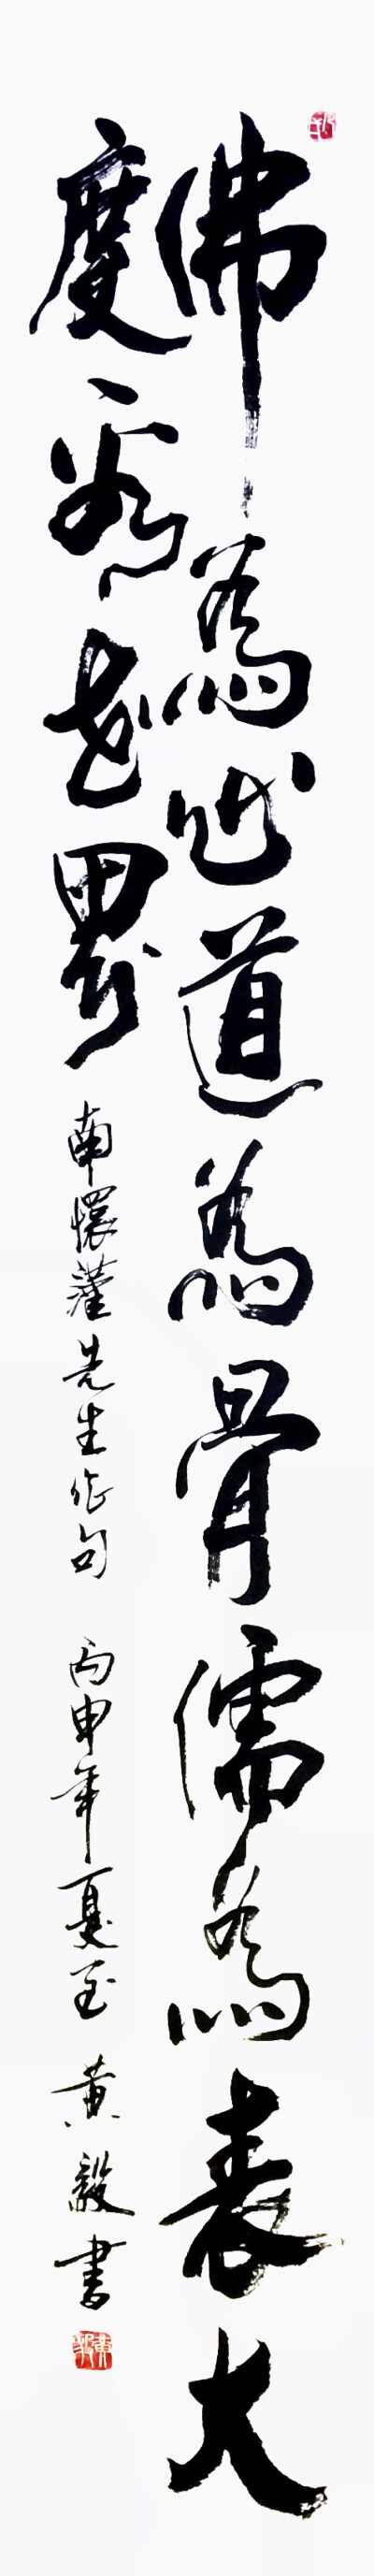 佛為心道為骨儒為表大
度看世界 南懷瑾先生作句 丙申年夏至 黄毅書